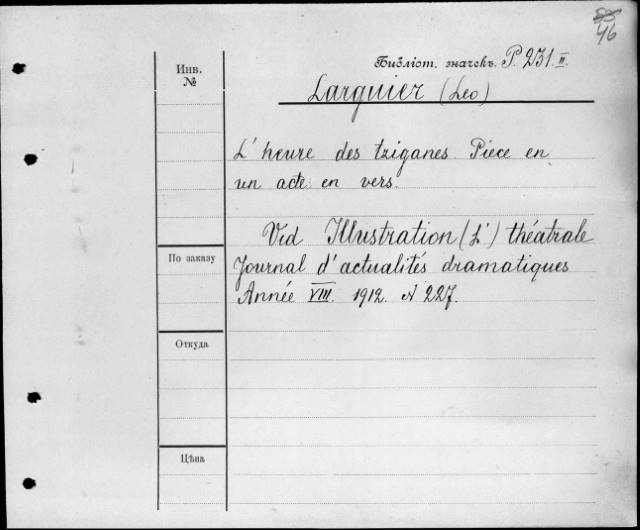 46
Инв.
№
Библіот. значекъ P. 231.II.
Larguier (Leo)
L'heure des tziganes. Piece en
un acte en vers.
Vid Illustration (L') théatrale
По заказу
Journal d'actualités dramatiques
Année VIII. 1912. N 227.
Откуда
Цѣна